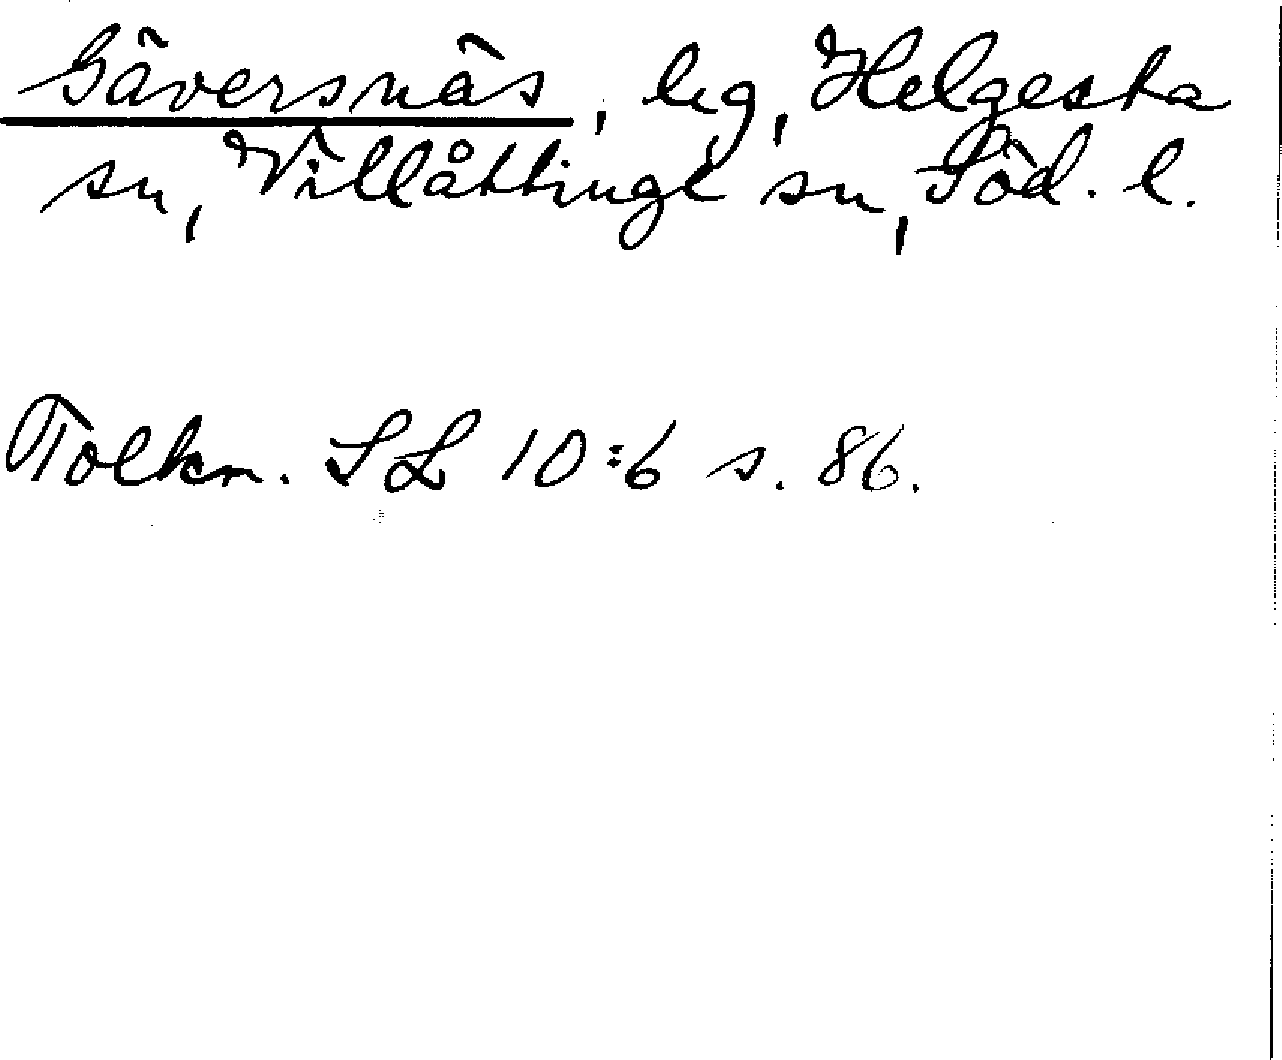 Säversnäs, lig, Helgesta
sn, Villåttinge sn, Söd. l.
Tolkn. SL 10:6 s. 86.